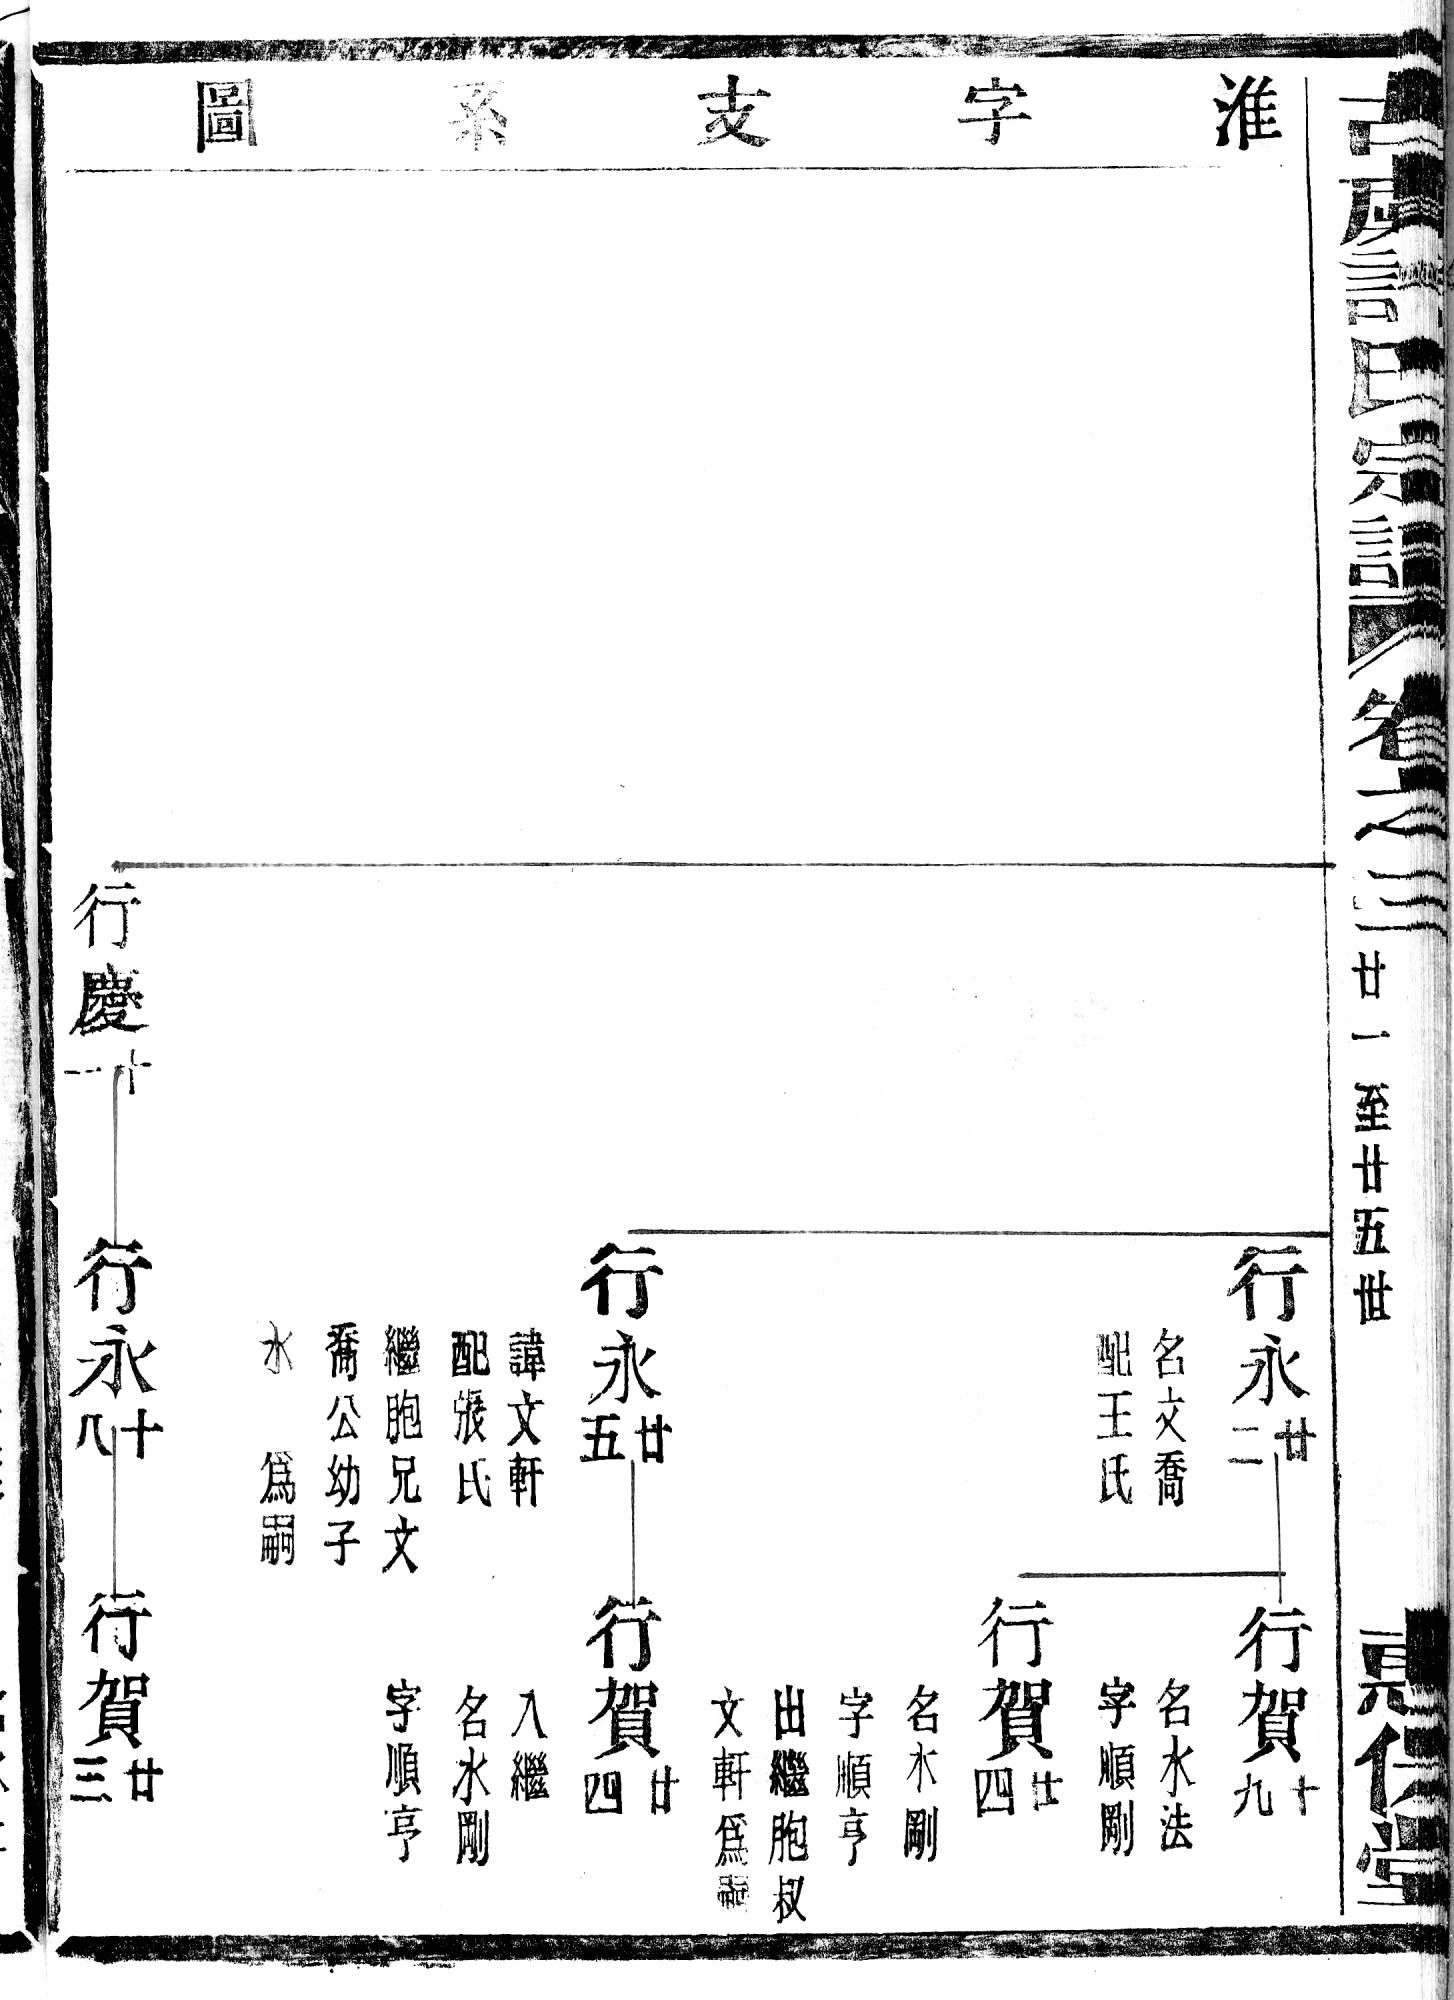 淮字支系圖
氏宗譜
卷之三
廿一至廿五世
堂
行永廿二
名文喬
配王氏
行賀十九
名水法
字順剛
行賀廿四
名水剛
字順亨
出繼胞叔
文軒爲嗣
行永廿五
諱文軒
配張氏
繼胞兄文
喬公幼子
水 爲嗣
行賀廿四
入繼
名水剛
字順亨
行慶十一
行永十八
行賀廿三